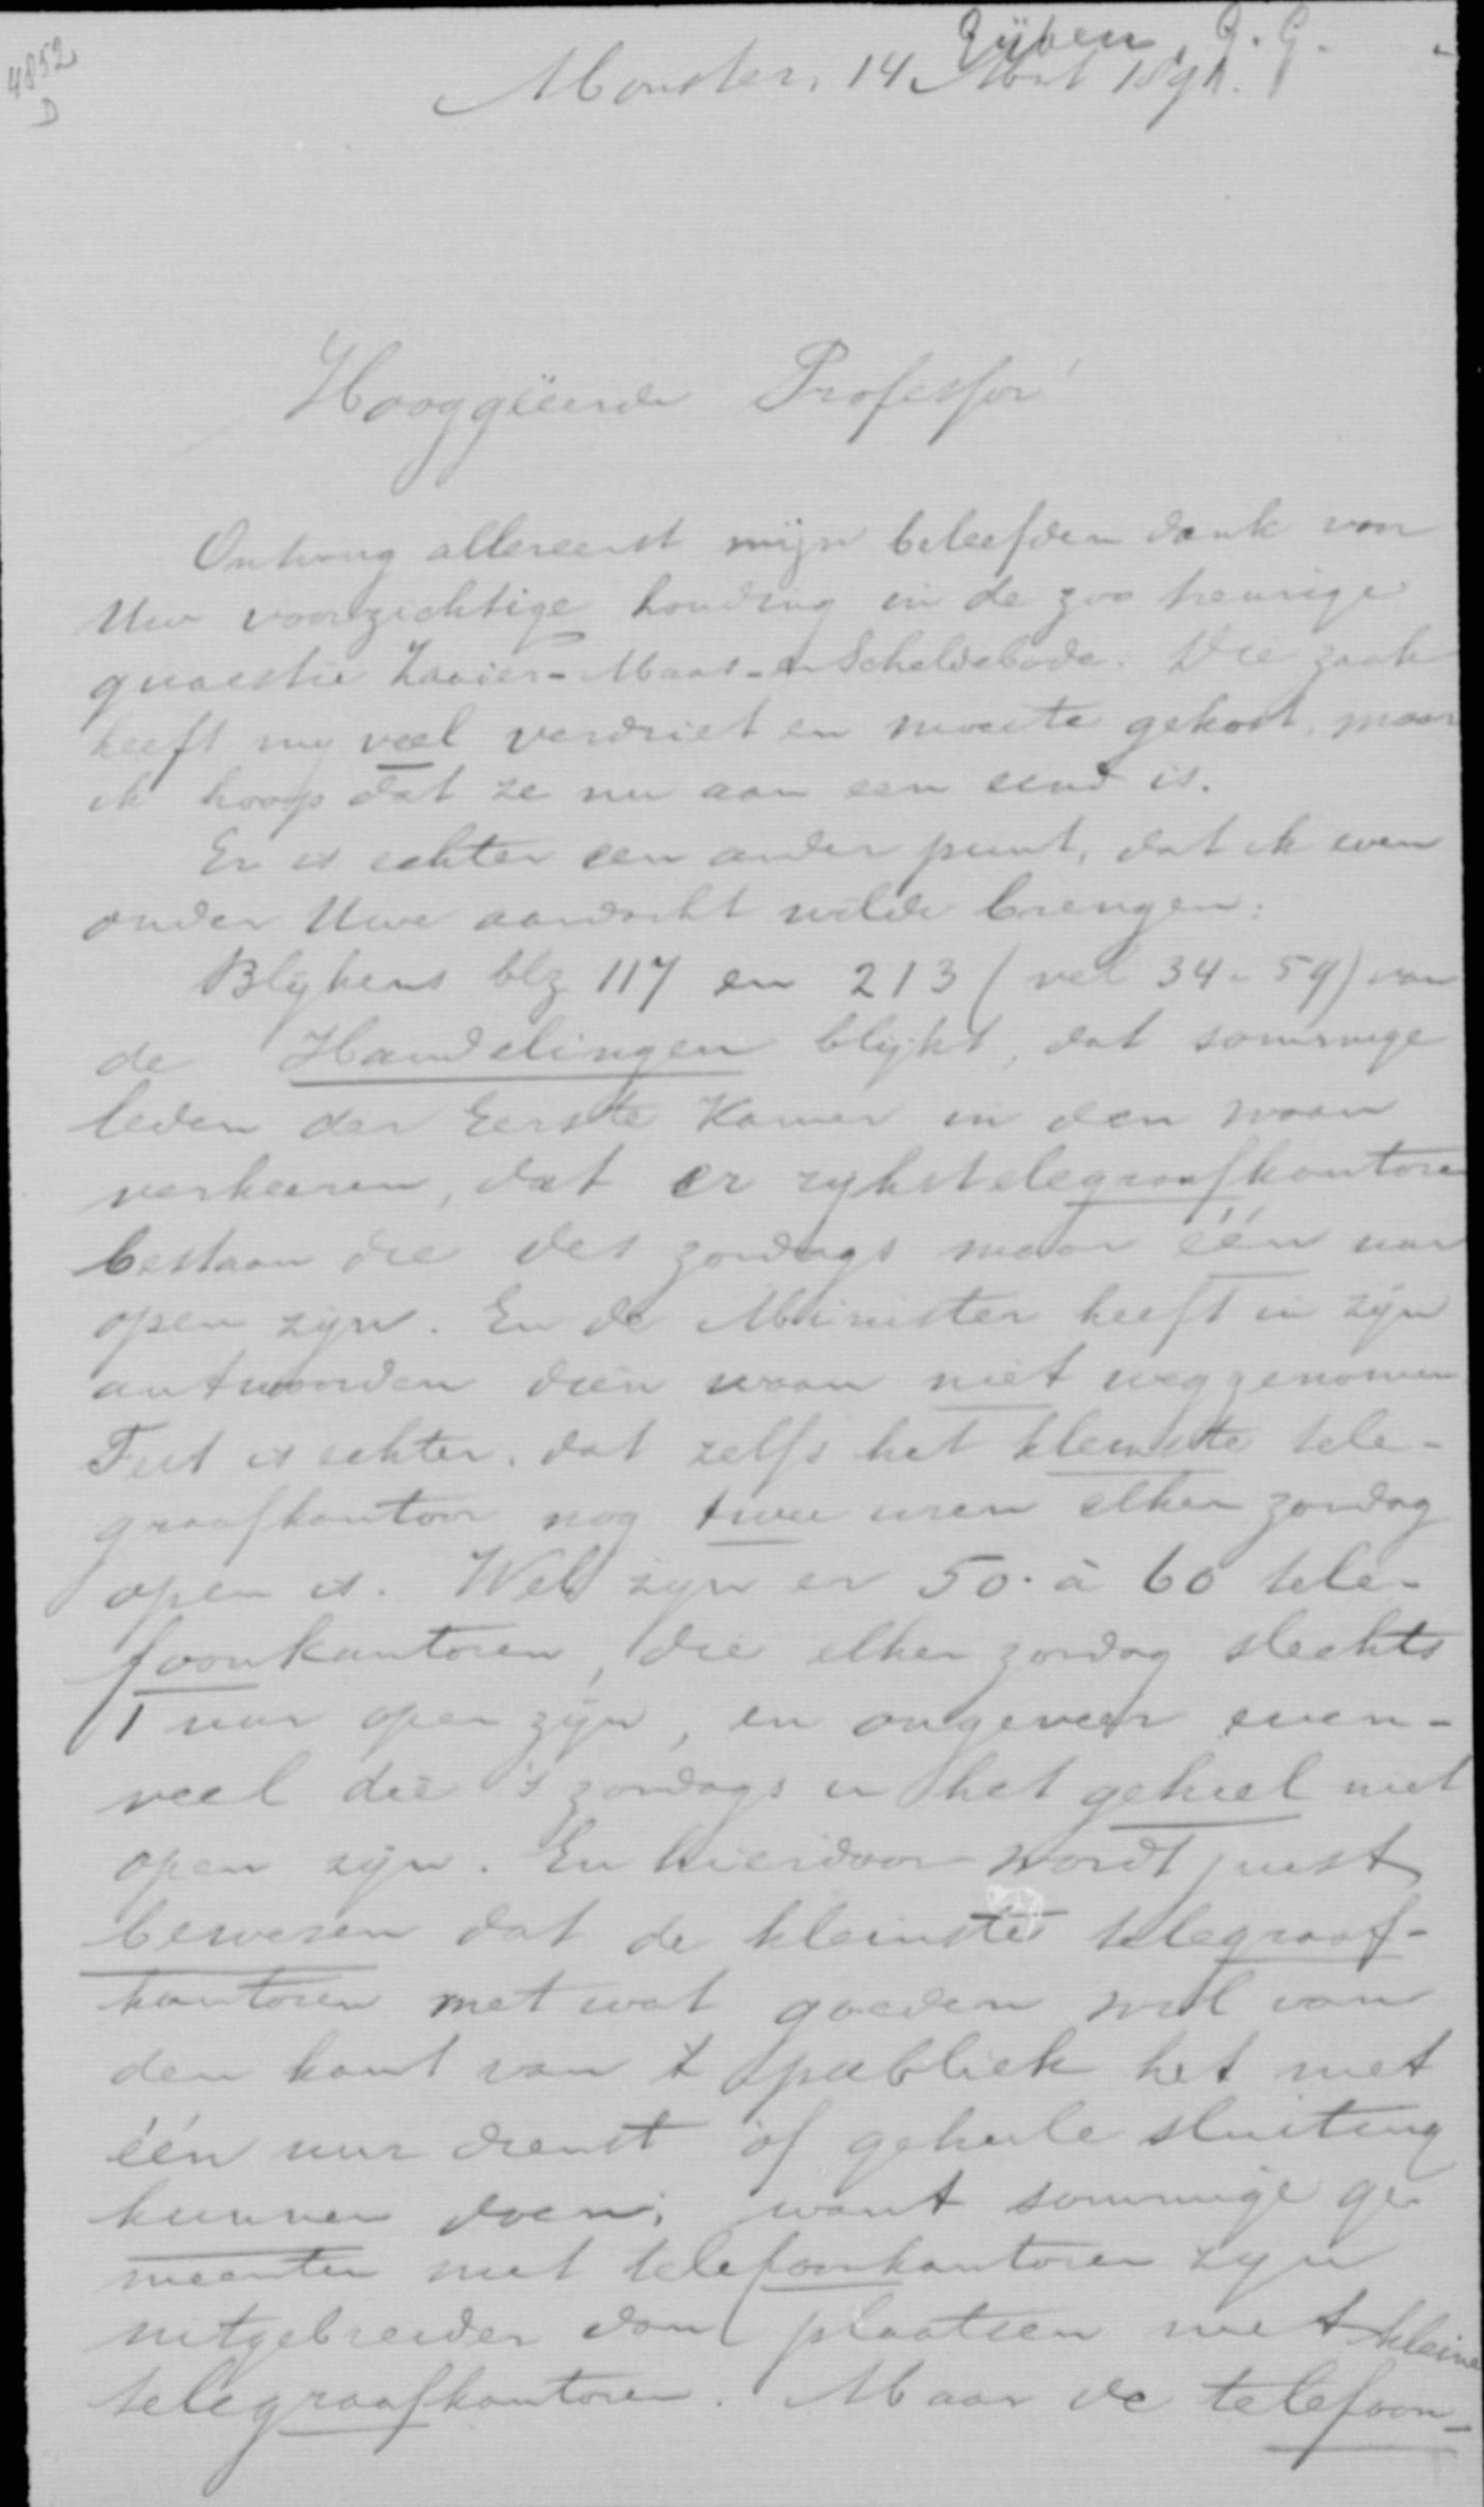 4852
D
Gijben, J. G.
Monster, 14 Mrt 1891.
Hooggeleerde Professor
Ontvang allereerst mijn beleefden dank voor
Uwe voorzichtige houding in de zoo treurige
quaestie - Maas- en Scheldebode. Die zaak
heeft my veel verdriet en moeite gekost, maar
ik hoop dat ze nu aan een eind is.
Er is echter een ander punt, dat ik even
onder Uwe aandacht wilde brengen:
Blykens blz 117 en 213 (vel 34 - 59) van
de Handelingen blykt, dat sommige
leden der Eerste Kamer in den waan
verkeeren, dat er rykstelegraafkantoren
bestaan die des zondags maar één uur
open zyn. En de Minister heeft in zyn
antwoorden dien waan niet weggenomen
Feit is echter, dat zelfs het kleinste tele-
graafkantoor nog twee uren elken zondag
open is. Wel zyn er 50 à 60 tele-
foonkantoren, die elken zondag slechts
1 uur open zyn, en ongeveer even-
veel die 's zondags in het geheel niet
open zyn. En hierdoor wordt juist
bewezen dat de kleinste telegraaf-
kantoren met wat goeden wil van
den kant van 't publiek het met
één uur dienst of geheele sluiting
kunnen doen; want sommige ge-
meenten met telefoonkantoren zyn
uitgebreider dan plaatsen met kleine
telegraafkantoren. Maar de telefoon-